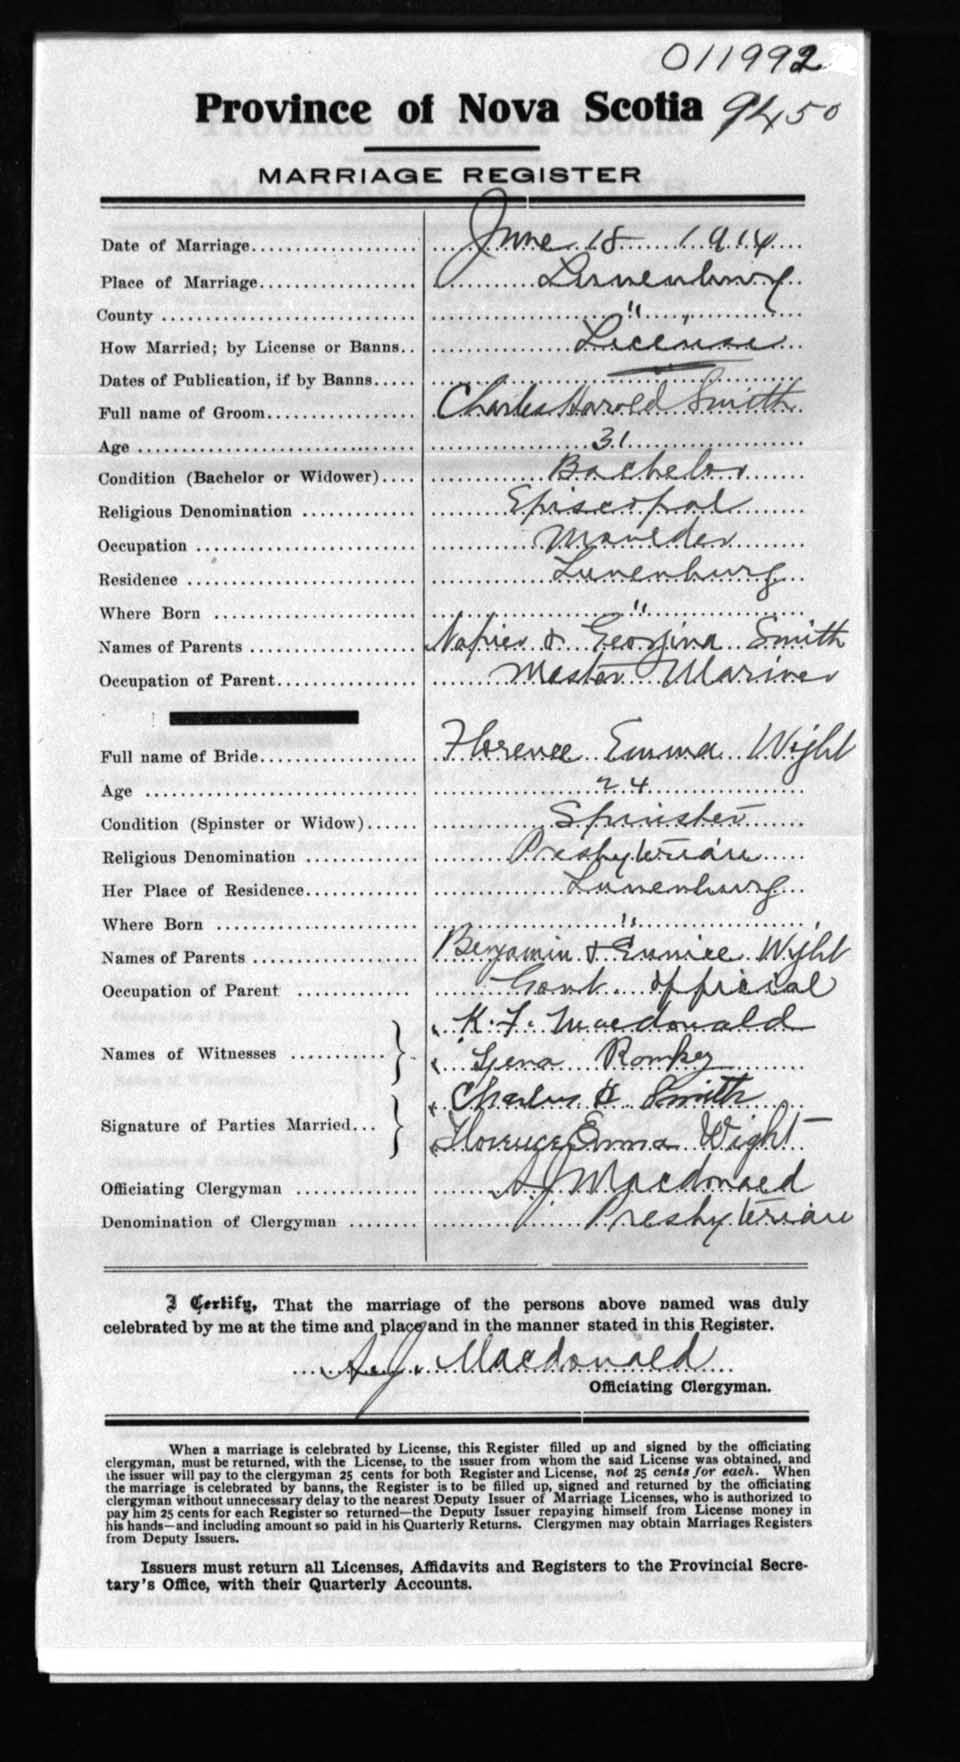 011992
Province of Nova Scotia 9450
MARRIAGE REGISTER
Date of Marriage.................... June 18 1914
Place of Marriage.................. Lunenburg
County ............................. "
How Married; by License or Banns.. License
Dates of Publication, if by Banns.....
Full name of Groom................. Charles Harold Smith
Age ................................ 31
Condition (Bachelor or Widower).... Bachelor
Religious Denomination ............. Episcopal
Occupation ......................... Moulder
Residence .......................... Lunenburg
Where Born ....................... "
Names of Parents ................... Napier & Georgina Smith
Occupation of Parent................ Master Mariner
Full name of Bride.................. Florence Emma Wight
Age ............................... 24
Condition (Spinster or Widow)...... Spinster
Religious Denomination ............ Presbyterian
Her Place of Residence............. Lunenburg
Where Born ....................... "
Names of Parents .................. Benjamin & Eunice Wight
Occupation of Parent ............. Govt. Official
K. F. Macdonald
Names of Witnesses ...........
Romkey
Charles H Smith
Signature of Parties Married...
Florence Emma Wight
Officiating Clergyman .............. A J Macdonald
Denomination of Clergyman ........ Presbyterian
I Certify, That the marriage of the persons above named was duly
celebrated by me at the time and place and in the manner stated in this Register.
A. J. Macdonald
Officiating Clergyman.
When a marriage is celebrated by License, this Register filled up and signed by the officiating
clergyman, must be returned, with the License, to the issuer from whom the said License was obtained, and
the issuer will pay to the clergyman 25 cents for both Register and License, not 25 cents for each. When
the marriage is celebrated by banns, the Register is to be filled up, signed and returned by the officiating
clergyman without unnecessary delay to the nearest Deputy Issuer of Marriage Licenses, who is authorized to
pay him 25 cents for each Register so returned—the Deputy Issuer repaying himself from License money in
his hands—and including amount so paid in his Quarterly Returns. Clergymen may obtain Marriages Registers
from Deputy Issuers.
Issuers must return all Licenses, Affidavits and Registers to the Provincial Secre-
tary's Office, with their Quarterly Accounts.